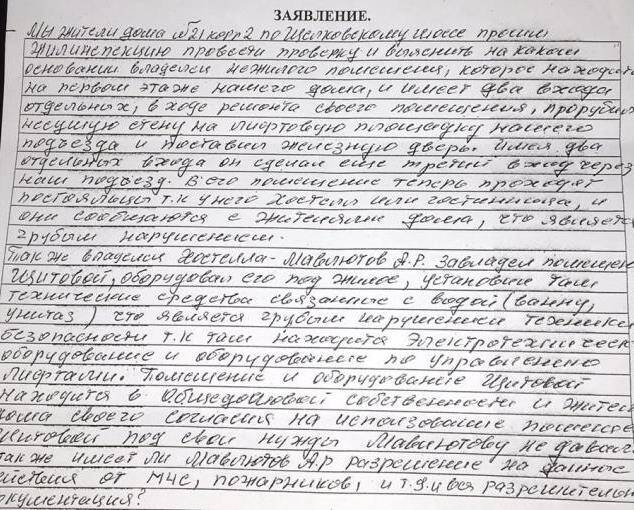 ЗАЯВЛЕНИЕ.
Мы жители дома №21 корп 2 по Щелковскому шоссе просим
жилинспекцию провести проверку и выяснить на каком
основании владелец нежилого помещения, которое находит
на первом этаже нашего дома, и имеет два входа
отдельных, в ходе ремонта своего помещения, прорубил
несущую стену на лифтовую площадку нашего
подъезда и поставил железную дверь. Имея два
отдельных входа он сделал еще третий вход через
наш подъезд. В его помещение теперь проходят
постояльцы т.к у него хостелл или гостинница, и
они сообщаются с жителями дома, что являетс
грубым нарушением.
Также владелец Хостелла - Мавлютов А.Р. Завладел помещен
Щитовой, оборудовал его под жилое, установил там
технические средства связанные с водой (ванну,
унитаз) что является грубым нарушением техники
безопасности т.к там находится Электротехническ
оборудование и оборудование по управлению
лифтами. Помещение и оборудование Щитовой
находится в Общедомовой собственности и жител
дома своего согласия на использование помещен
Щитовой под свои нужды Мавлютову не давал
также имеет ли Мавлютов А.Р разрешение на данные
ействия от МЧС, пожарников, и т.д. и вся разрешительн
окументация?